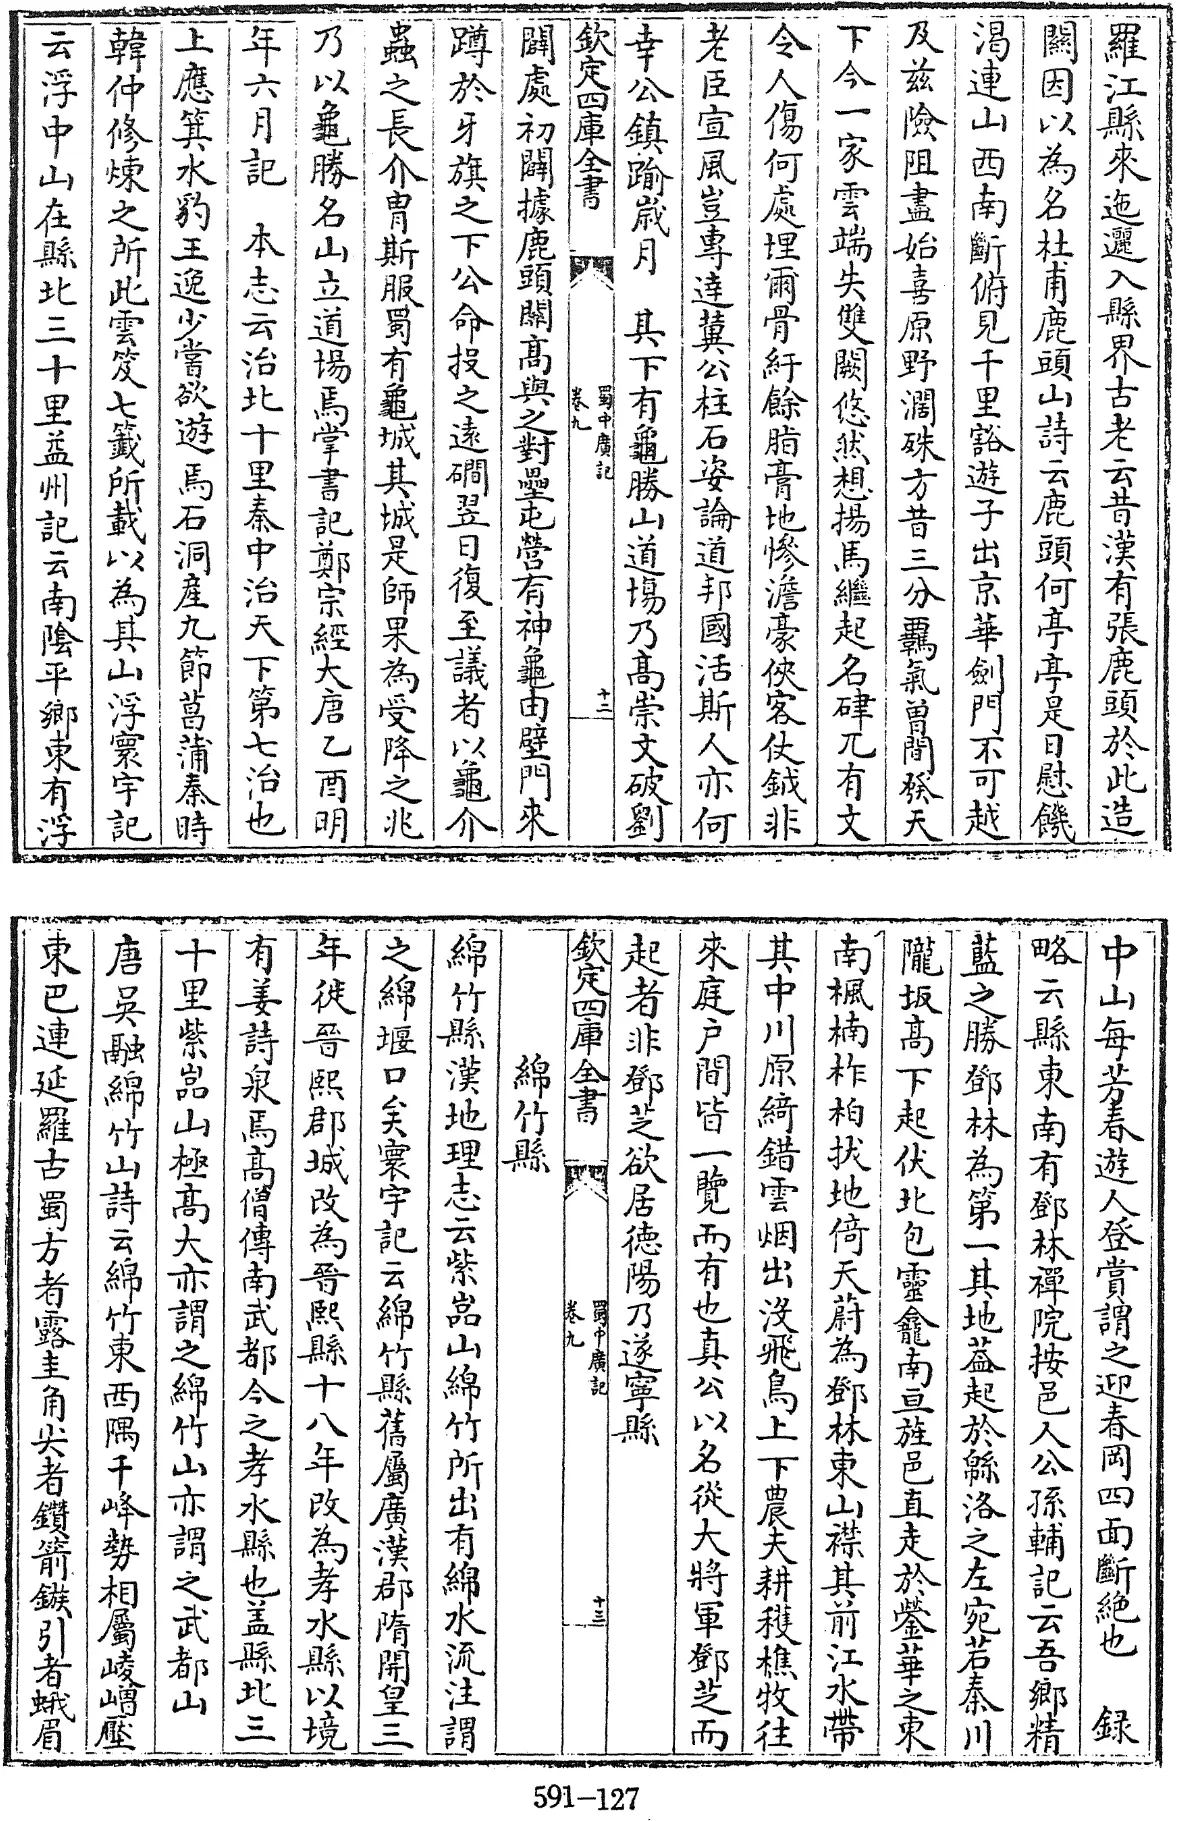 羅江縣來迤邐入縣界古老云昔漢有張鹿頭於此造
關因以為名杜甫鹿頭山詩云鹿頭何亭亭是日慰饑
渴連山西南斷俯見千里豁遊子出京華劍門不可越
及兹險阻盡始喜原野濶殊方昔三分霸氣曽間發天
下今一家雲端失雙闕悠然想揚馬繼起名硉兀有文
令人傷何處埋爾骨紆餘脂膏地慘澹豪俠客仗鉞非
老臣宣風豈專達冀公柱石姿論道邦國活斯人亦何
幸公鎮踰歲月　其下有龜勝山道塲乃高崇文破劉
欽定四庫全書
蜀中廣記
卷九
十二
闢處初闢據鹿頭關高與之對壘屯營有神龜由壁門來
蹲於牙旗之下公命投之遠磵翌日復至議者以龜介
蟲之長介胄斯服蜀有龜城其城是師果為受降之兆
乃以龜勝名山立道場焉掌書記鄭宗經大唐乙酉明
年六月記　本志云治北十里秦中治天下第七治也
上應箕水豹王逸少嘗欲遊焉石洞產九節菖蒲秦時
韓仲修煉之所此雲笈七籤所載以為其山浮寰宇記
云浮中山在縣北三十里益州記云南陰平鄉東有浮
中山每芳春遊人登賞謂之迎春岡四面斷絶也　録
略云縣東南有鄧林禪院按邑人公孫輔記云吾鄉精
藍之勝鄧林為第一其地葢起於緜洛之左宛若秦川
隴坂高下起伏北包靈龕南亘旌邑直走於鎣華之東
南楓楠柞柏扶地倚天蔚為鄧林東山襟其前江水帶
其中川原綺錯雲烟出没飛鳥上下農夫耕穫樵牧往
來庭户間皆一覽而有也真公以名從大將軍鄧芝而
起者非鄧芝欲居德陽乃遂寧縣
欽定四庫全書
蜀中廣記
卷九
十三
綿竹縣
綿竹縣漢地理志云紫嵓山綿竹所出有綿水流注謂
之綿堰口矣寰宇記云綿竹縣舊屬廣漢郡隋開皇三
年徙晉熙郡城改為晉熙縣十八年改為孝水縣以境
有姜詩泉焉高僧傳南武都今之孝水縣也盖縣北三
十里紫嵓山極高大亦謂之綿竹山亦謂之武都山
唐吳融綿竹山詩云綿竹東西隅千峰勢相屬崚嶒壓
東巴連延羅古蜀方者露圭角尖者鑽箭鏃引者蛾眉
591-127